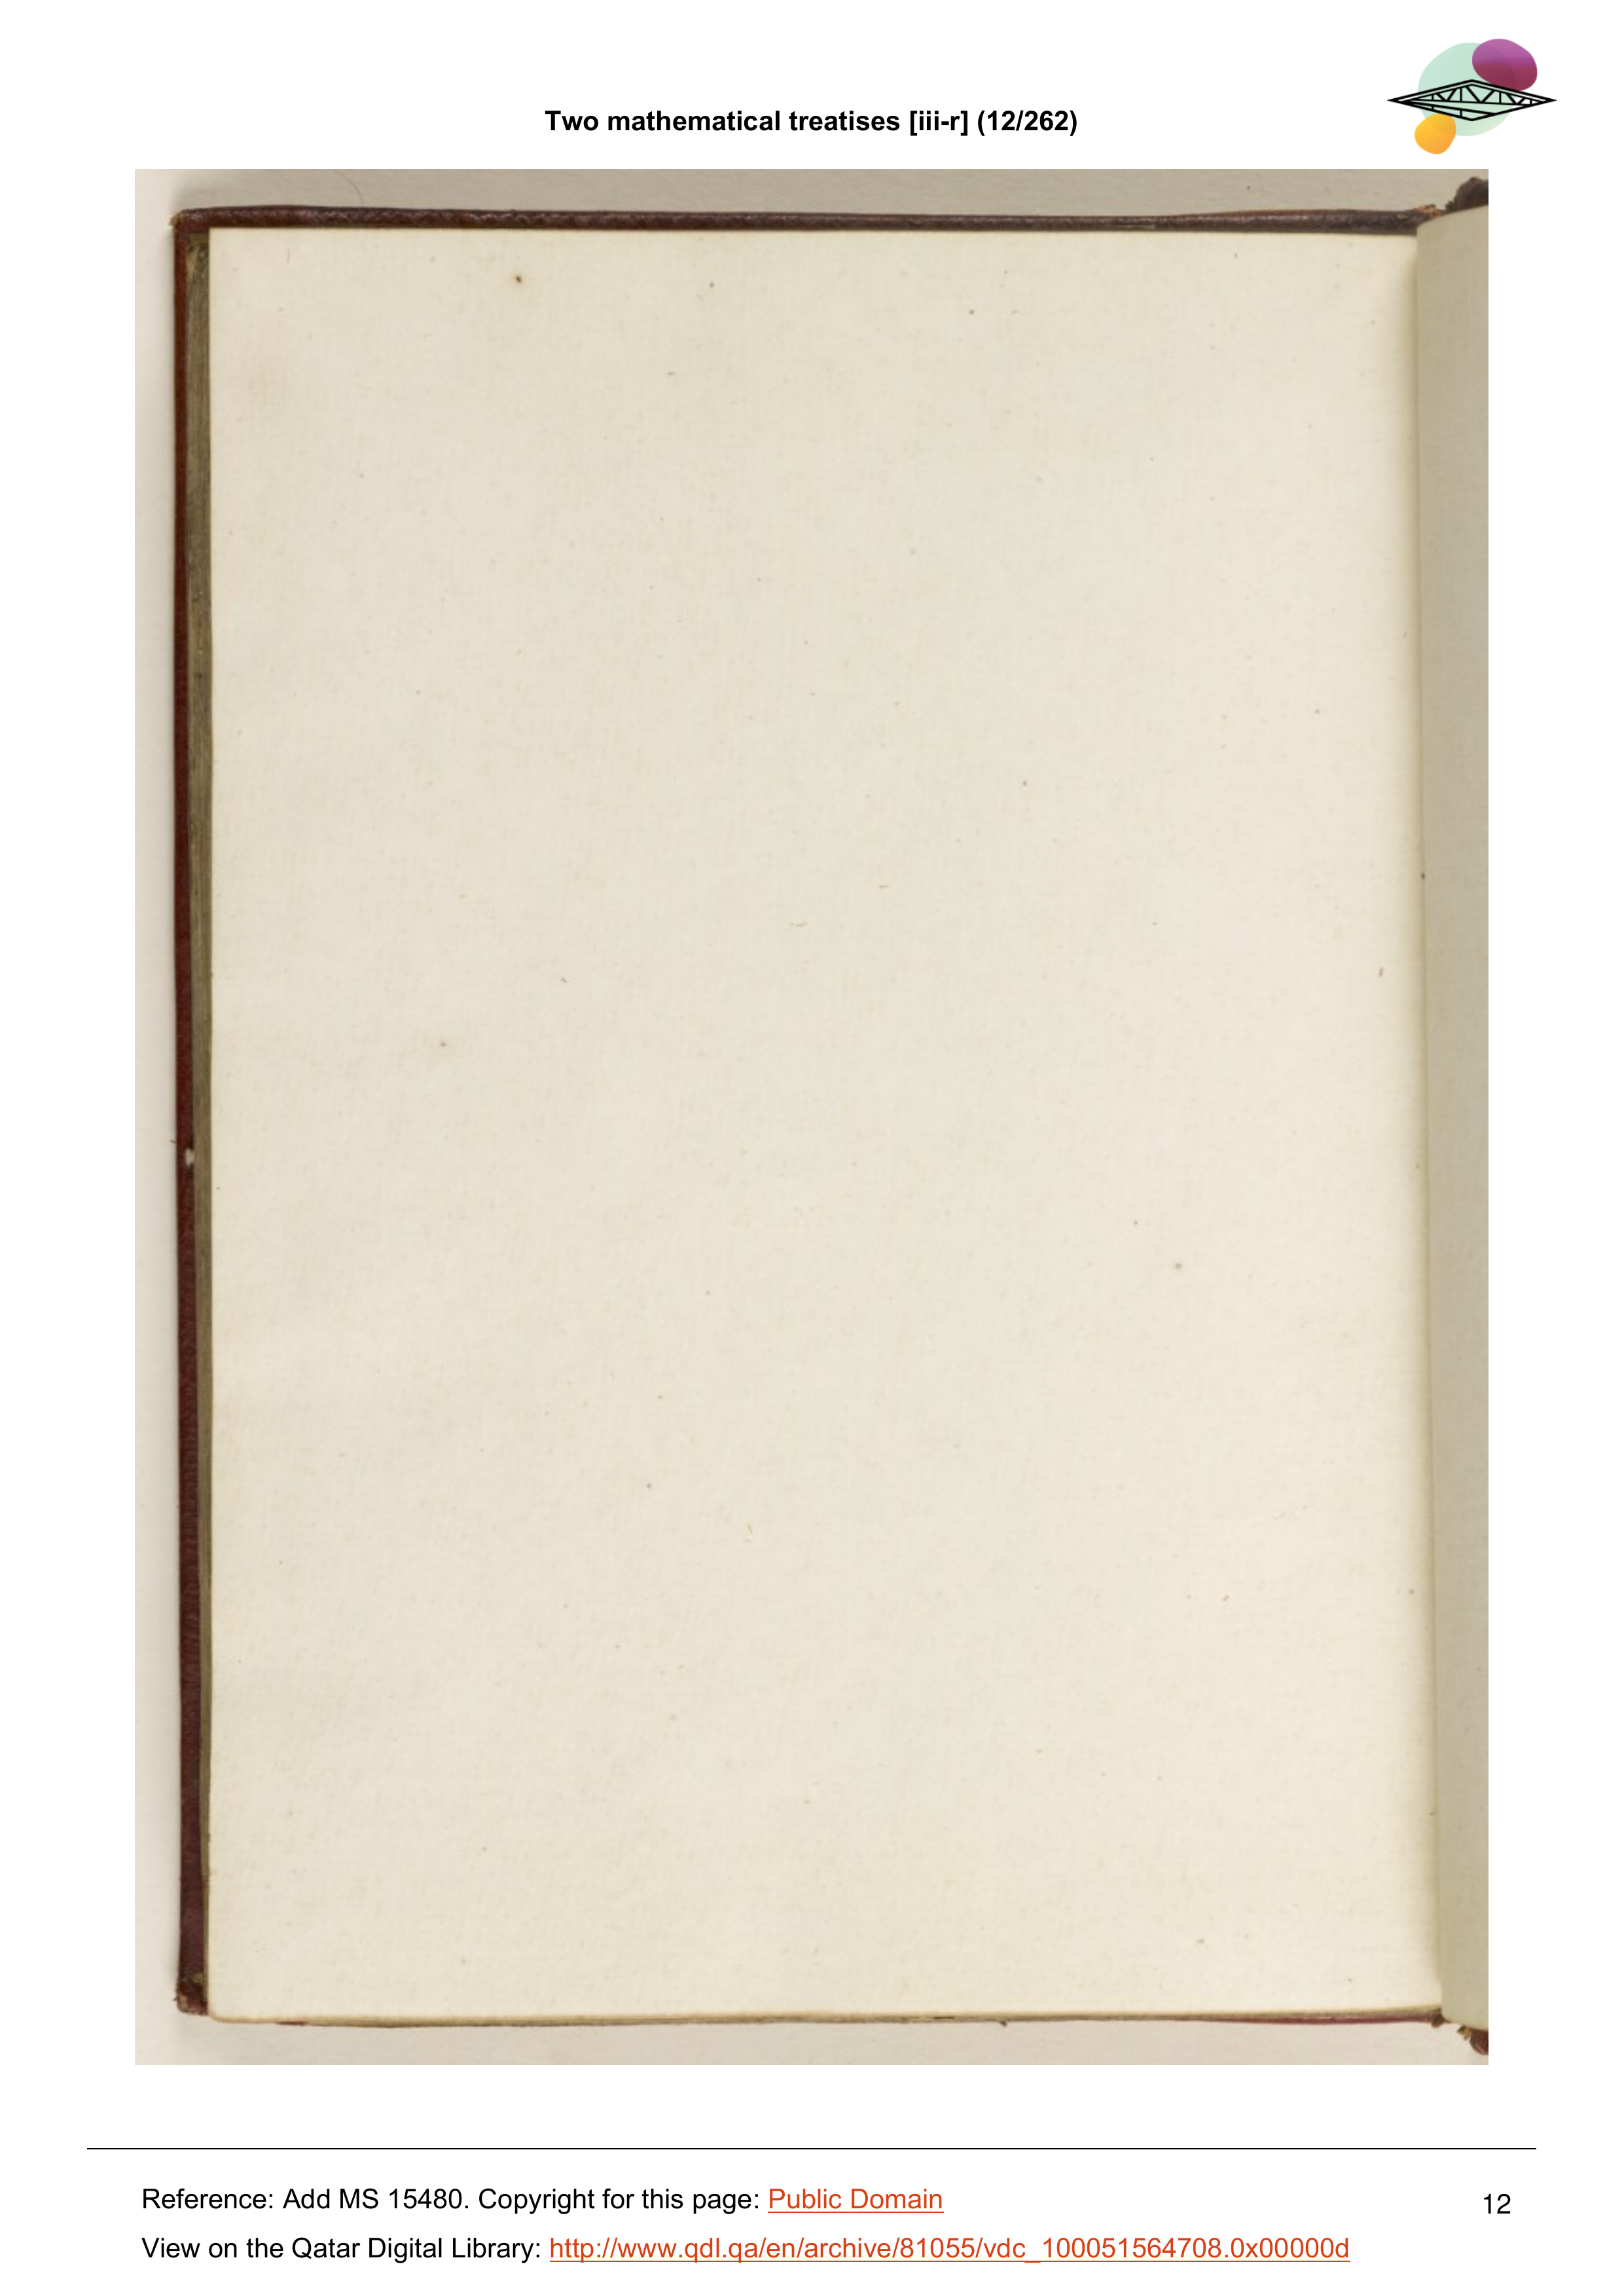 Two mathematical treatises [iii-r] (12/262)
Reference: Add MS 15480. Copyright for this page: Public Domain
12
View on the Qatar Digital Library: http://www.qdl.qa/en/archive/81055/vdc_100051564708.0x00000d